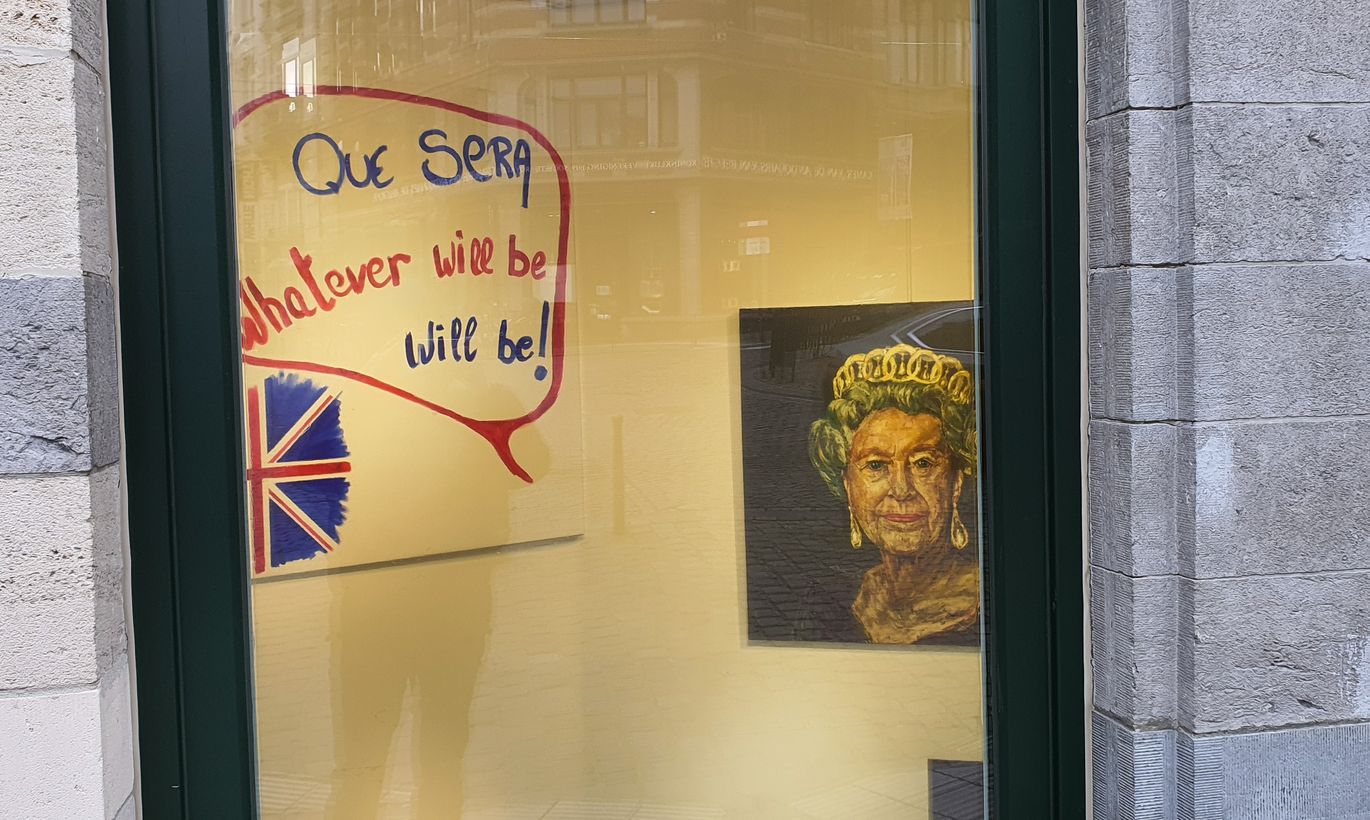 QUE SERA
Whatever will be
will be!